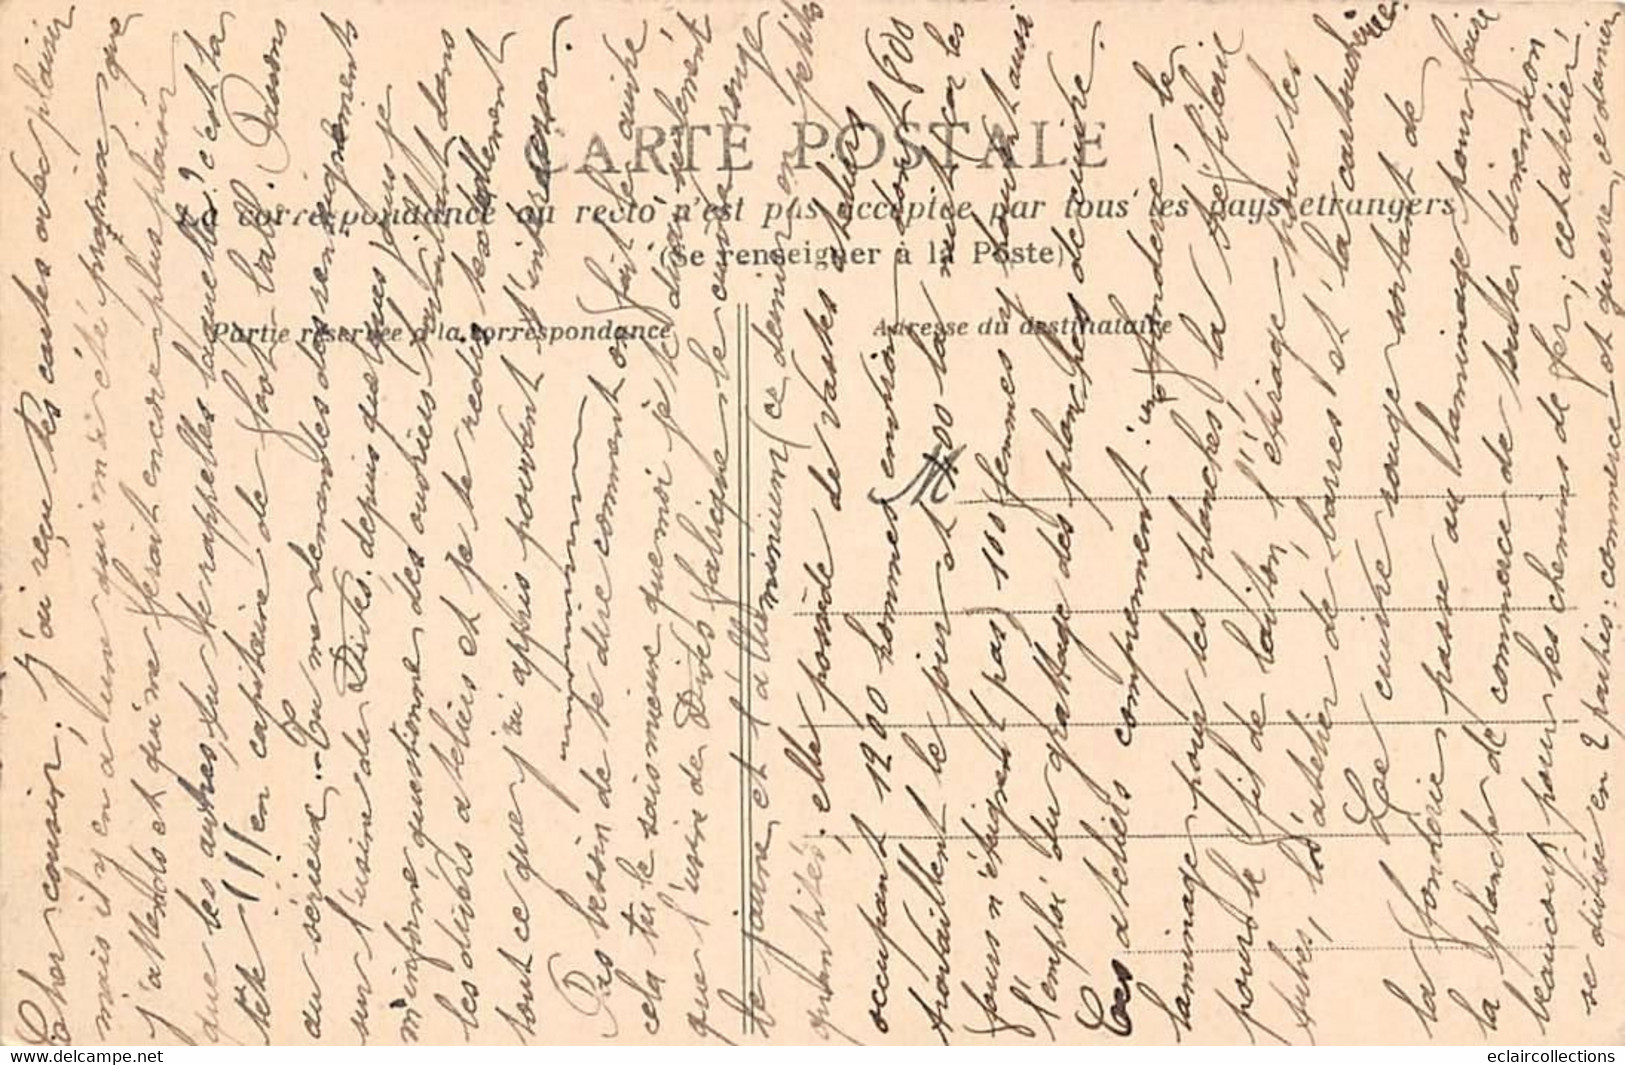 CARTE POSTALE
La correspondance au recto n'est pas acceptée par tous les pays étrangers
(Se renseigner à la Poste)
Partie réservée à la correspondance
Adresse du destinataire
M
Cher cousin, J'ai reçu tes cartes avec plaisir
mais il y en a une qui m'a été promise que
j'attends et qui me ferait encore plus plaisir
que les autres, tu te rappelles laquelle? c'est ta
tête !!!! en capitaine de foot-ball. Passons
au sérieux. - Tu me demandes des renseignements
sur l'usine de Dives. depuis quelques jours je
m'informe, questionne des ouvriers travaillant dans
les divers ateliers et je te redis textuellement
tout ce que j'ai appris pouvant t'intéresser.
Pas besoin de te dire comment on fait le cuivre
cela tu le sais mieux que moi je te dirai seulement
que l'usine de Dives fabrique le cuivre rouge
le jaune et l'alluminium (ce dernier en petites
quantités) elle possède de vastes ateliers
occupant 1900 hommes environ dont 800
travaillent le jour et 400 la nuit car les
fours n'éteignent pas 100 femmes y sont aussi
l'emploi du grattage des planches de cuivre.
Ces ateliers comprennent: une fonderie le
laminage pour les planches, la tréfilerie
pour le fil de laiton, l'étirage pour les
tubes, l'atelier de barres et la cartoucherie.
Le cuivre rouge sortant de
la fonderie passe au laminage pour faire
la planche de commerce de toute dimension
beaucoup pour les chemins de fer; cet atelier
se divise en 2 parties: commerce et guerre, ce dernier
eclaircollections